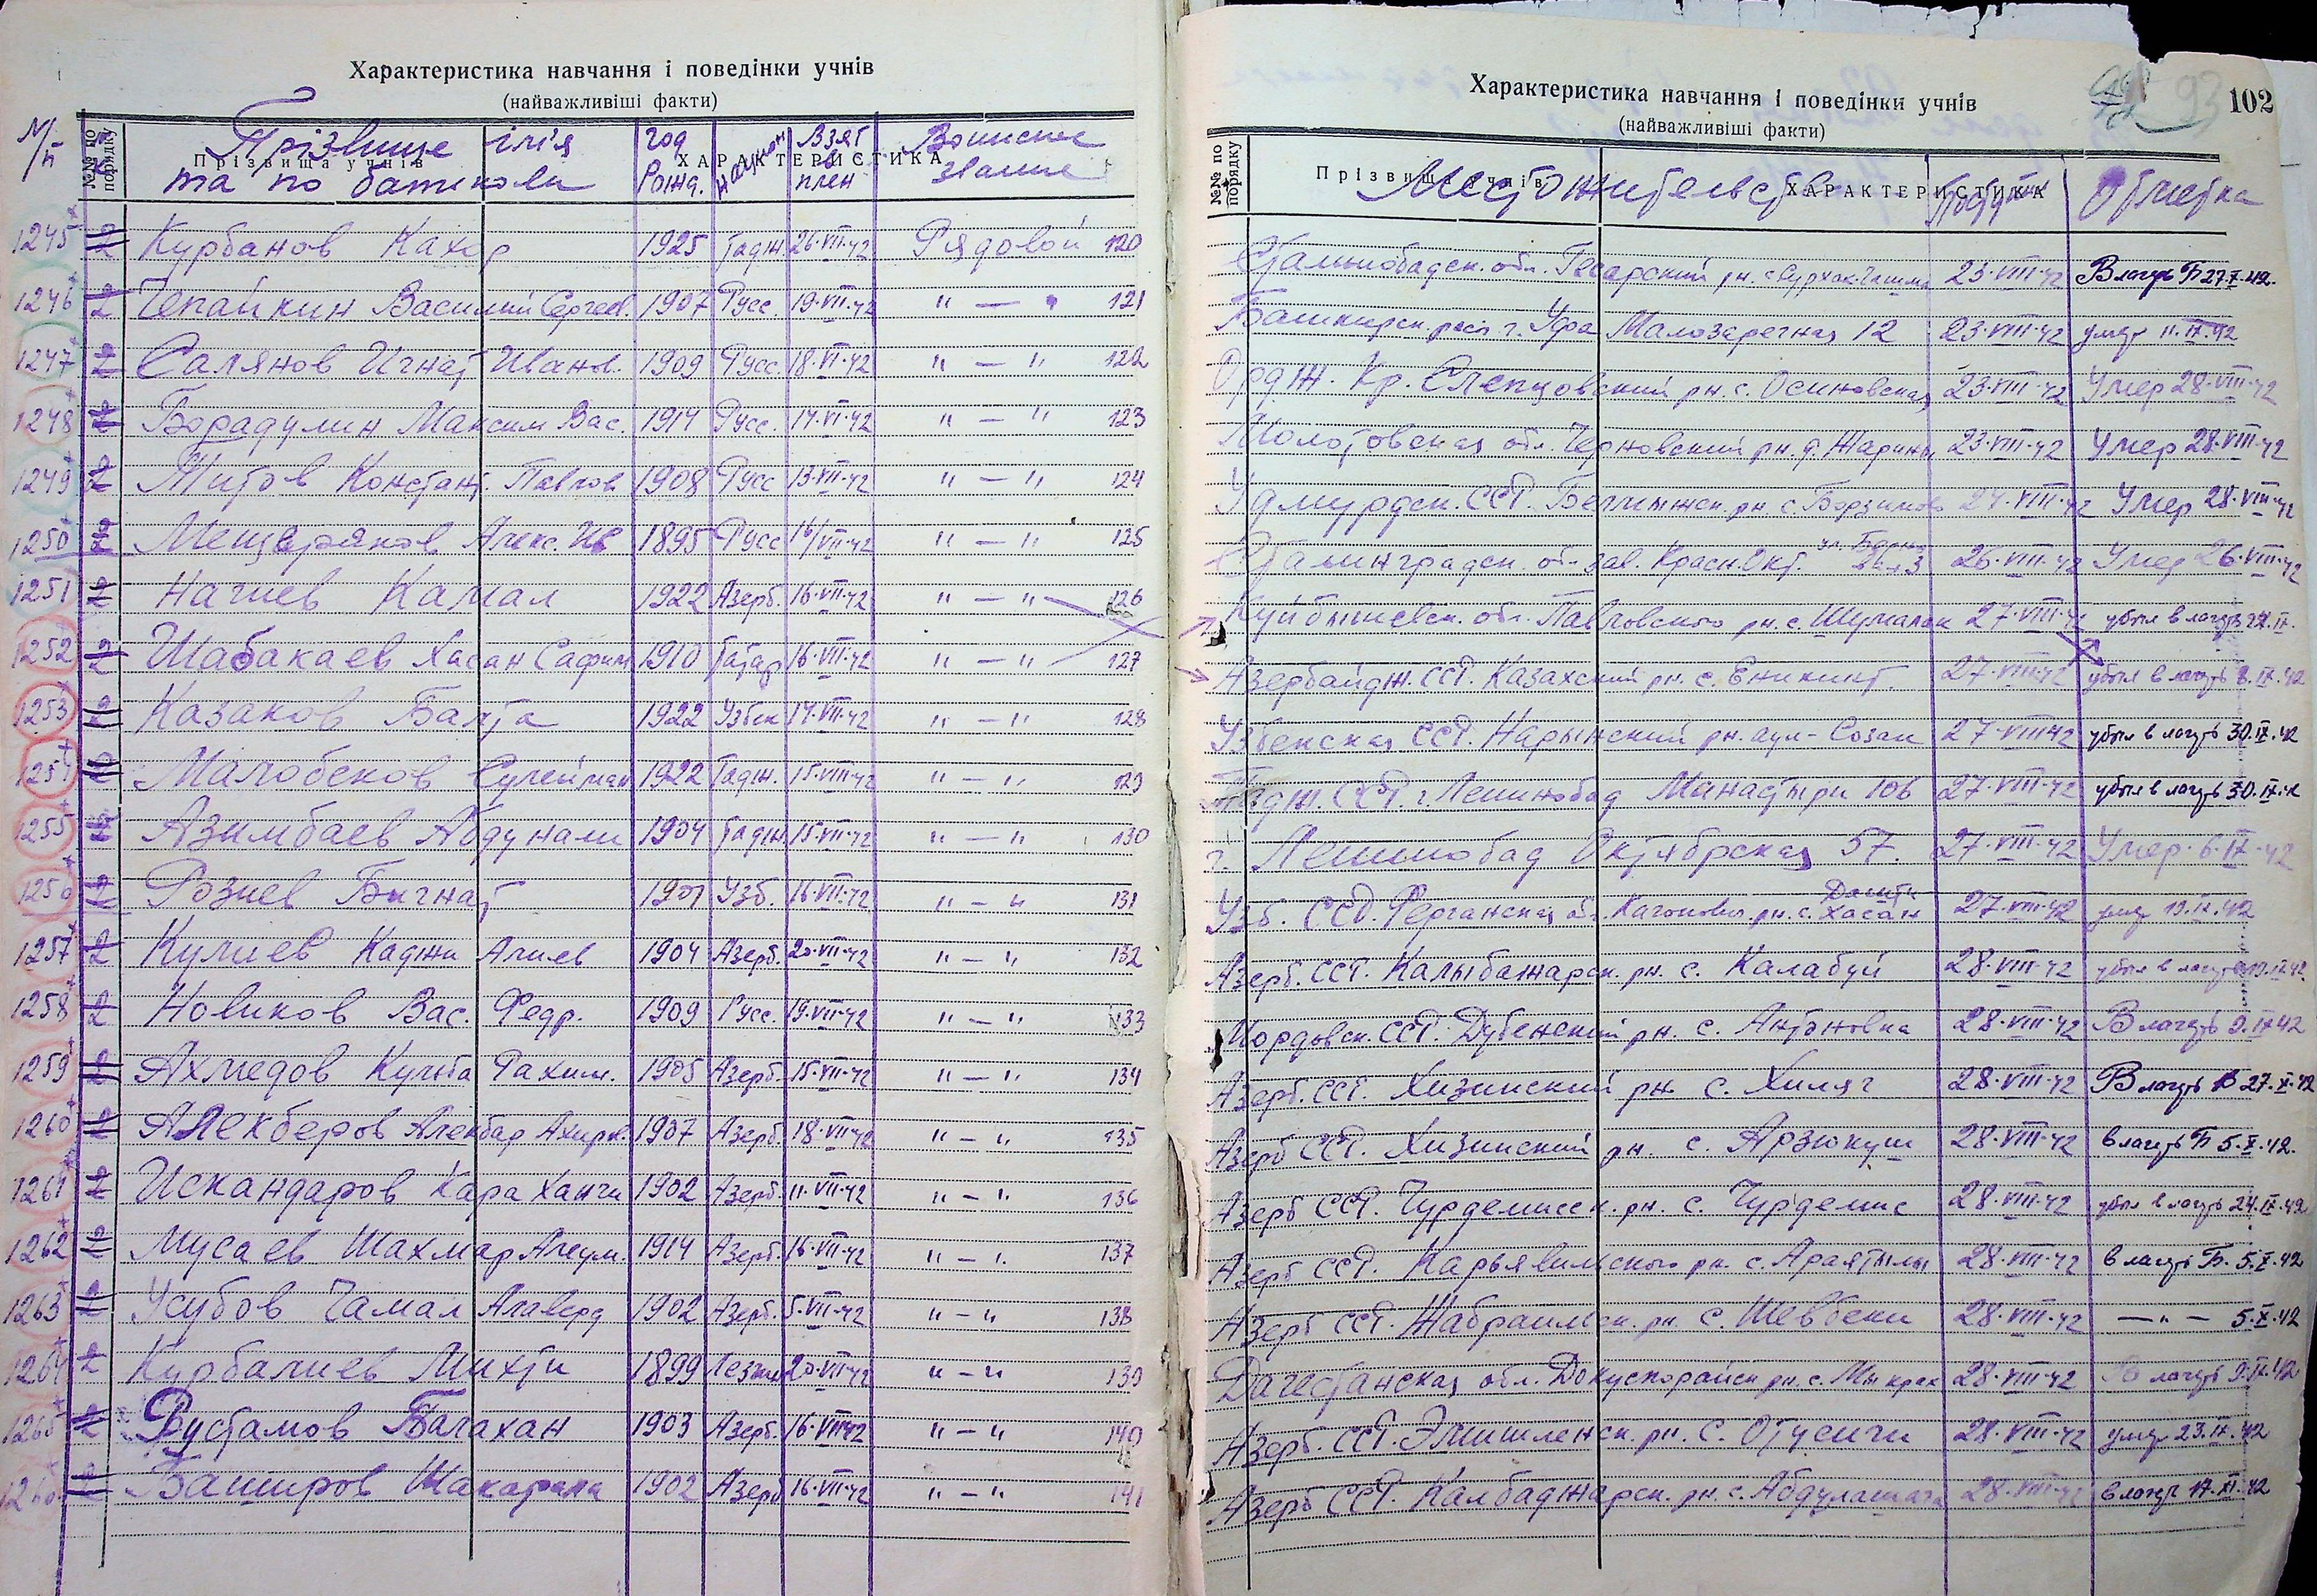 Характеристика навчання і поведінки учнів
(найважливіші факти)
№/п №№ по порядку Прізвища учнів ХАРАКТЕРИСТИКА
Прізвище ім'я та по батькови Год рожд. Национ Взят в плен Воинское звание
1245 Курбанов Кахор 1925 Тадж. 26.VII.42 Рядовой 120
1246 Чепайкин Василий Сергеев. 1907 Русс. 19.VII.42 " — " 121
1247 Салянов Игнат Иванов. 1909 Русс. 18.VI.42 " — " 122
1248 Борадулин Максим Вас. 1914 Русс. 14.VI.42 " — " 123
1249 Титов Констант. Павлов 1908 Русс 13.VII.42 " — " 124
1250 Мещеряков Алекс. Ив 1895 Русс 16/VII.42 " — " 125
1251 Нагиев Камал 1922 Азерб. 16.VII.42 " — " 126
1252 Шабакаев Хасан Сафин 1910 Татар 16.VII.42 " — " 127
1253 Казаков Балта 1922 Узбек 14.VII.42 " — " 128
1254 Малобеков Сулейман 1922 Тадж. 15.VIII.42 " — " 129
1255 Азимбаев Абдунали 1904 Тадж 15.VII.42 " — " 130
1256 Розиев Бигнат 1901 Узб. 16.VII.42 " — " 131
1257 Кулиев Каджи Алиев 1904 Азерб. 20.VII.42 " — " 132
1258 Новиков Вас. Федр. 1909 Русс. 19.VII.42 " — " 133
1259 Ахмедов Культа Рахим. 1905 Азерб. 15.VII.42 " — " 134
1260 Алекберов Алекбар Ахирк. 1907 Азерб. 18.VII.42 " — " 135
1261 Искандаров Кара Ханчи 1902 Азерб. 11.VII.42 " — " 136
1262 Мусаев Шахмар Алеум. 1914 Азерб. 16.VII.42 " — " 137
1263 Усубов Чамал Алаверд 1902 Азерб. 5.VII.42 " — " 138
1264 Курбалиев Михти 1899 Лезгин 20.VII.42 " — " 139
1265 Рустамов Балахан 1903 Азерб. 16.VII.42 " — " 140
1266 Баширов Шакарала 1902 Азерб 16.VII.42 " — " 141
Характеристика навчання і поведінки учнів 93 102
(найважливіші факти)
№№ по порядку Прізвища учнів ХАРАКТЕРИСТИКА
Местожительство Поступ Отметка
Сталинобадск. обл. Гесарский рн. 23.VIII.42 В лагерь Б 27.X.42.
Башкирск. респ. г. Уфа Малозаречная 12 23.VIII.42 умер 11.IX.42
Ордж. Кр. Слепцовский рн. с. Осиновская 23.VIII.42 Умер 28.VIII.42
Молотовская обл. Черновский рн. д. Жарины 23.VIII.42 Умер 28.VIII.42
Удмуртск. ССР. рн. с. 24.VIII.42 Умер 28.VIII.42
Сталинградск. обл. зав. Красн. Окт. ул. 26.VIII.42 Умер 26.VIII.42
Куйбышевск. обл. Павловского рн. с. Шумалак 27.VIII.42 убыл в лагерь IX.
Азербайдж. ССР. Казахский рн. с. Еникинт. 27.VIII.42 убыл в лагерь 9.IX.42
Узбекская ССР. Нарынский рн. аул-Созак 27.VIII.42 убыл в лагерь 30.IX.42
Тадж. ССР. г. Ленинобад Манастыри 106 27.VIII.42 убыл в лагерь 30.IX.42
г. Ленинобад Октябрская 57. 27.VIII.42 Умер. 6.IX.42
Узб. ССР. Ферганская об. Каганович. рн. с. Дашти Хасан 27.VIII.42 умер 19.IX.42
Азерб. ССР. Калыбажарск. рн. с. Калабуй 28.VIII.42 убыл в лагерь 19.IX.42
Мордовск. ССР. Дубенский рн. с. Антоновка 28.VIII.42 В лагерь 9.IX.42
Азерб. ССР. Хизинский рн. с. Хиляг 28.VIII.42 В лагерь Б 27.X.42
Азерб ССР. Хизинский рн. с. Арзюкуш 28.VIII.42 в лагерь Б 5.X.42.
Азерб ССР. Чурдемисск. рн. с. Чурдемис 28.VIII.42 убыл в лагерь 24.IX.42
Азерб ССР. Карьявильского рн. с. Араятылы 28.VIII.42 в лагерь Б. 5.X.42
Азерб ССР. Жабраильск. рн. с. Шевбеки 28.VIII.42 — " — 5.X.42
Дагестанская обл. Докузпорайск рн. с. Мыкрах 28.VIII.42 В лагерь 9.IX.42
Азерб. ССР. рн. с. Отусичи 28.VIII.42 умер 23.IX.42
Азерб ССР. Калбаджарск. рн. с. 28.VIII.42 в лагерь 17.XI.42